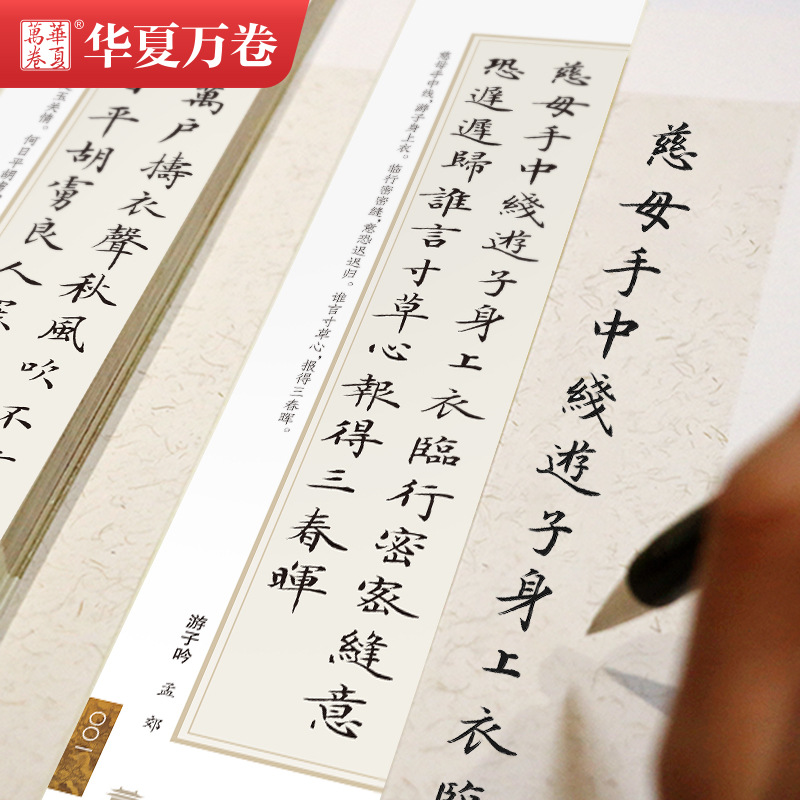 華夏萬卷
®
华夏万卷
慈母手中綫遊子身上衣臨
慈母手中綫遊子身上衣臨行密密縫意
恐遲遲歸誰言寸草心報得三春暉
慈母手中线，游子身上衣。临行密密缝，意恐迟迟归。谁言寸草心，报得三春晖。
游子吟
孟郊
〇〇一
萬户擣衣聲秋風吹不
平胡虜良人
玉关情。何日平胡虏，